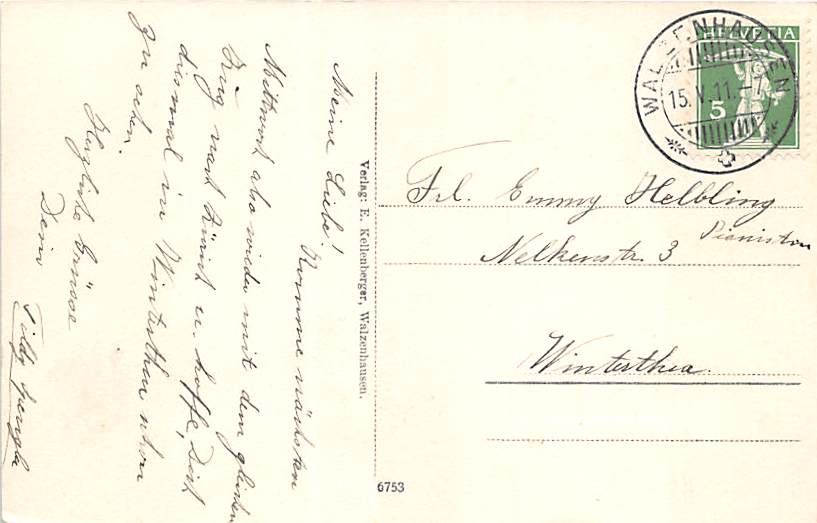 Meine Liebe!
Komme nächsten
Mittwoch also wieder mit dem gleichen
Zug nach Zürich u. hoffe, Dich
diesmal in Winterthur
zu sehen.
Herzliche Grüsse
Dein
Verlag: E. Kellenberger, Walzenhausen.
6753
WALZENHAUSEN
15.V.11.-7
HELVETIA
5
Frl. Emmy Helbling
Pianistin
Nelkenstr. 3
Winterthur.